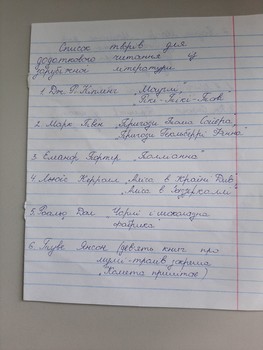 Список творів для
додаткового читання із
зарубіжної літератури
1. Дж. Р. Кіплінг „Мауглі"
„Рікі-Тікі-Таві"
2. Марк Твен „Пригоди Тома Сойєра,
Пригоди Гекльберрі Фінна"
3. Елеанор Портер „Полліанна"
4. Льюїс Керролл „Аліса в Країні Див,
„Аліса в Задзеркаллі
5. Роальд Дал „Чарлі і шоколадна
фабрика
6. Туве Янсон (девять книг про
мумі-тролів зокрема
„Комета прилітає)